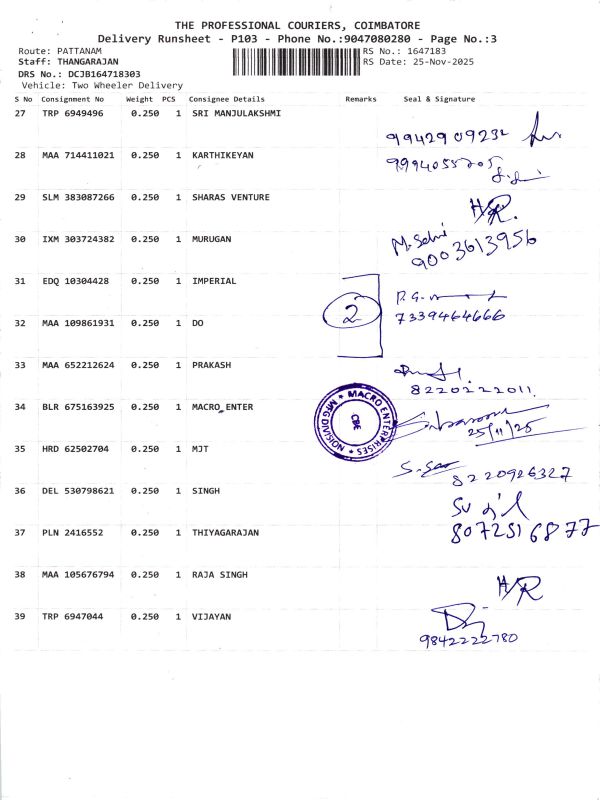 THE PROFESSIONAL COURIERS, COIMBATORE
Delivery Runsheet - P103 - Phone No.:9047080280 - Page No.:3
Route: PATTANAM RS No.: 1647183
Staff: THANGARAJAN RS Date: 25-Nov-2025
DRS No.: DCJB164718303
Vehicle: Two Wheeler Delivery
S No Consignment No Weight PCS Consignee Details Remarks Seal & Signature
27 TRP 6949496 0.250 1 SRI MANJULAKSHMI
9942909232
28 MAA 714411021 0.250 1 KARTHIKEYAN
9994055205
29 SLM 383087266 0.250 1 SHARAS VENTURE
H/R.
30 IXM 303724382 0.250 1 MURUGAN
9003613956
31 EDQ 10304428 0.250 1 IMPERIAL
2
7339464666
32 MAA 109861931 0.250 1 DO
33 MAA 652212624 0.250 1 PRAKASH
8220222011.
34 BLR 675163925 0.250 1 MACRO_ENTER
MACRO ENTERPRISES * MFG DIVISION *
CBE
25/11/25
35 HRD 62502704 0.250 1 MJT
8220926327
36 DEL 530798621 0.250 1 SINGH
8072516877
37 PLN 2416552 0.250 1 THIYAGARAJAN
38 MAA 105676794 0.250 1 RAJA SINGH
H/R
39 TRP 6947044 0.250 1 VIJAYAN
9842222780